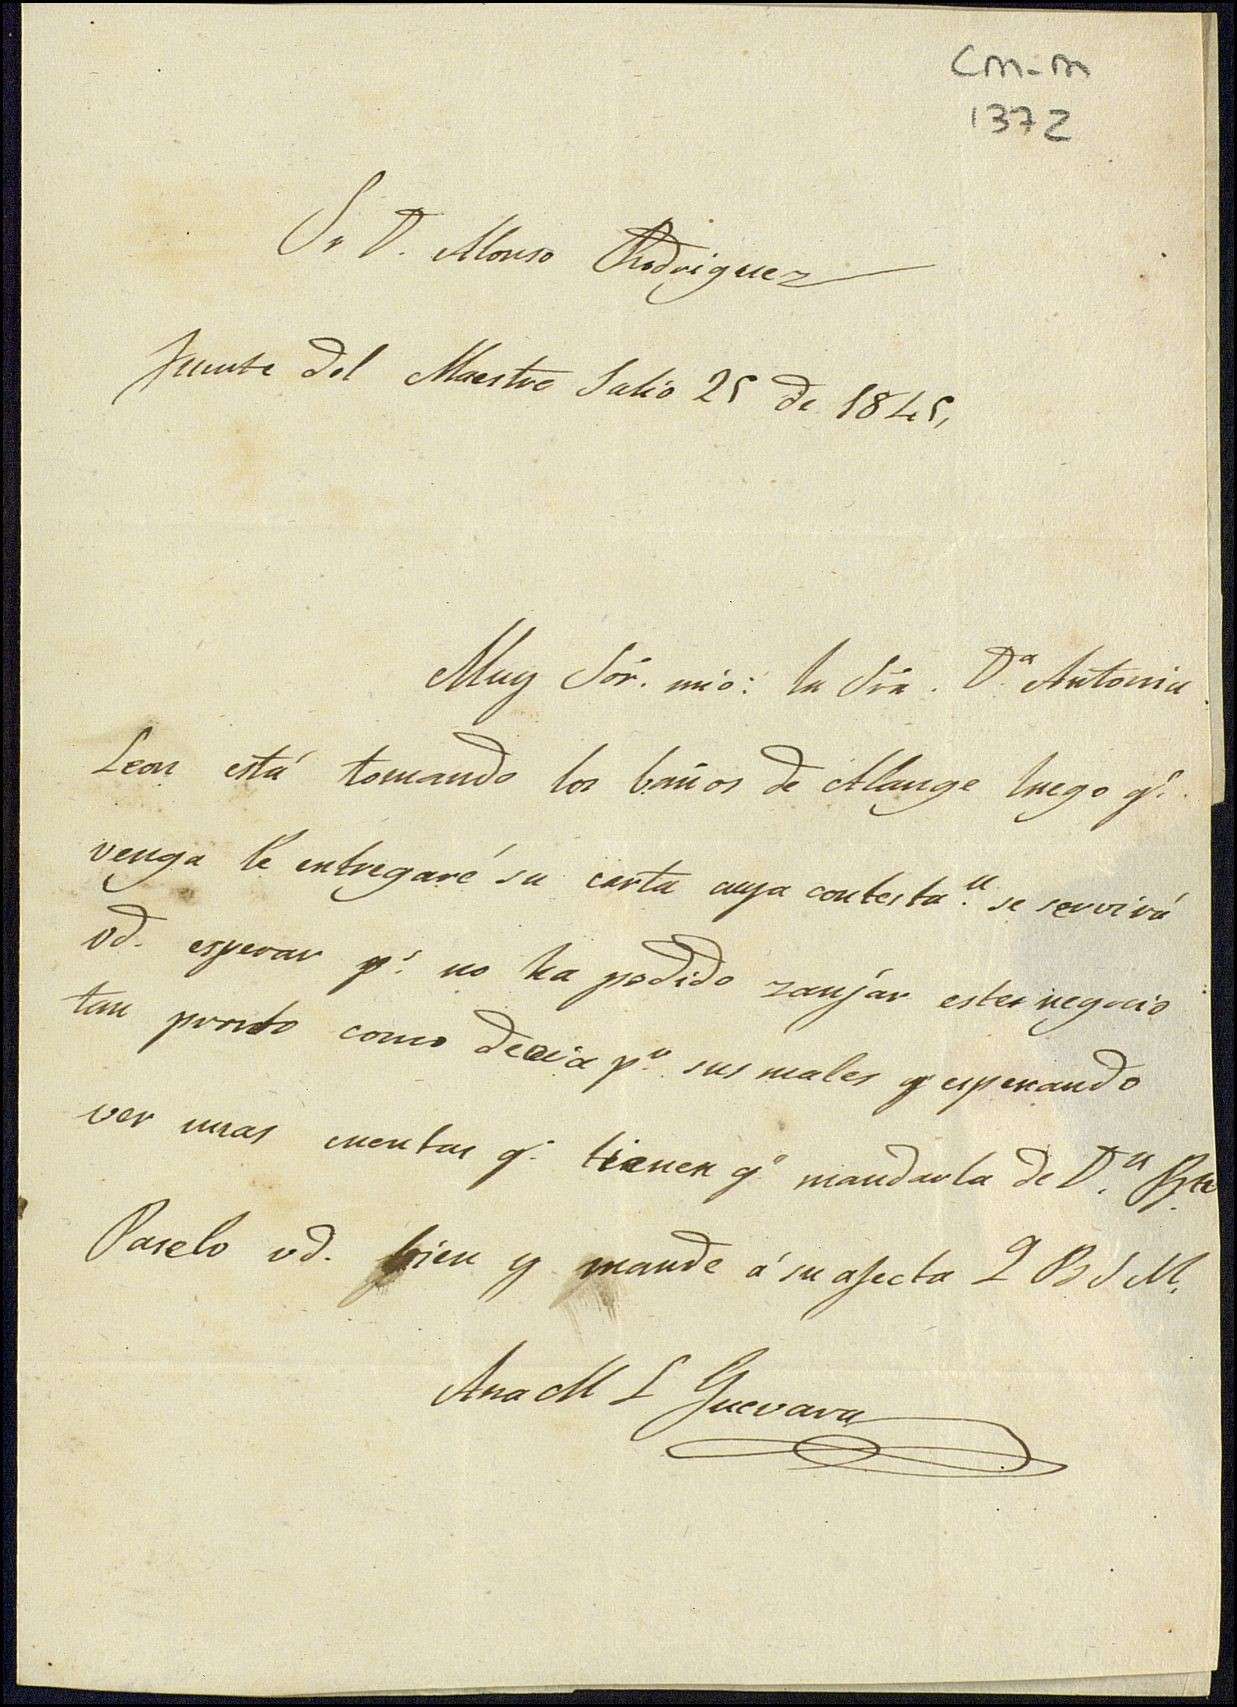 CM-M
1372
Sr D. Alonso Rodriguez
fuente del Maestre Julio 25 de 1845,
Muy Sór. mio: la Sra. Dª Antonia
Leon está tomando los baños de Alange luego qe.
venga le entregaré su carta cuya contestan. se servirá
vd. esperar ps. no ha podido zanjár este negocio
tan pronto como decia pr. sus males y esperando
ver unas cuentas qe. tienen qe mandarla de Da.
Paselo vd. bien y mande á su afecta Q B S M.
Ana M L Guevara